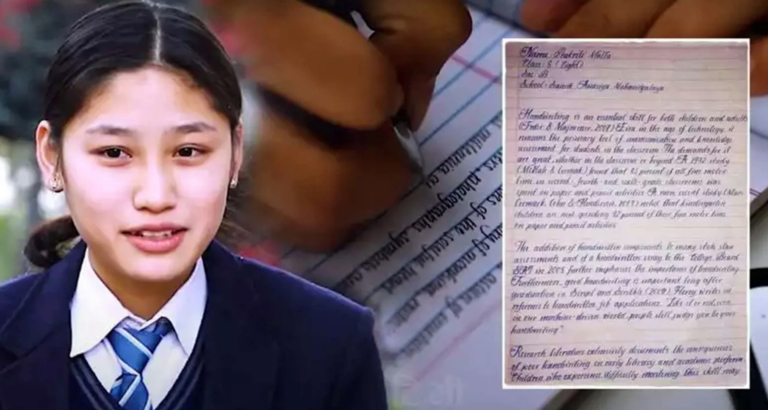 Name: Prakriti Malla
Class: 8 (Eight)
Sec: 'B'
School: Sainik Awasiya Mahavidyalaya
Handwriting is an essential skill for both children and adults
(Feder & Majnemer, 2007). Even in the age of technology, it
remains the primary tool of communication and knowledge
assessment for students in the classroom. The demands for it
are great, whether in the classroom or beyond. A 1992 study
(McHale & Cermak) found that 85 percent of all fine motor
time in second- fourth- and sixth-grade classrooms was
spent on paper and pencil activities. A more recent study (Marr,
Cermak, Cohn & Henderson, 2003) noted that kindergarten
children are now spending 42 percent of their fine motor time
on paper and pencil activities.
The addition of handwritten components to many state
assessments and of a handwritten essay to the College Board
SAT in 2005 further emphasizes the importance of handwriting.
Furthermore, good handwriting is important long after
graduation in
reference to handwritten job applications, "Like it or not, even
in our machine-driven world, people still judge you by your
handwriting".
Research literature extensively documents the consequences
of poor handwriting on early literacy and academic perform
Children who experience difficulty mastering this skill may